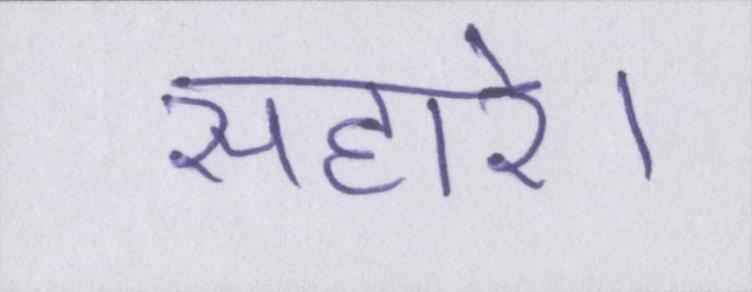 सहारे।